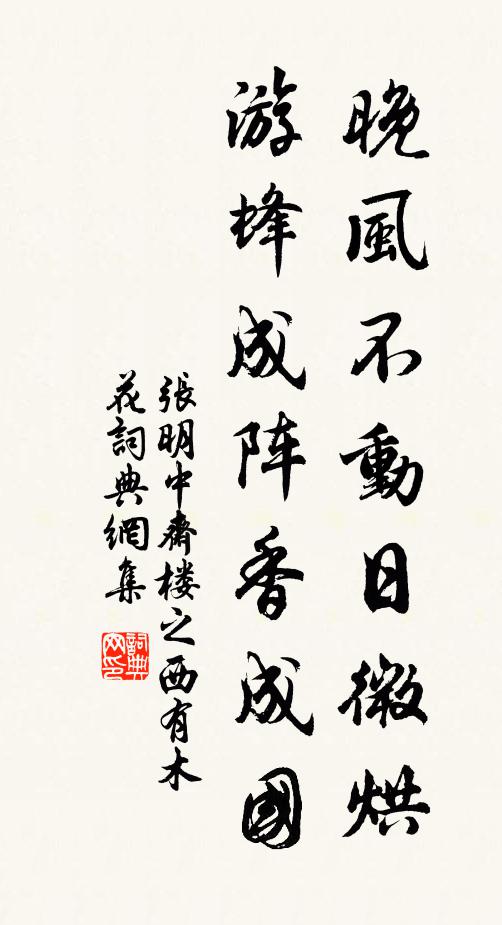 晚風不動日微烘
游蜂成阵香成國
張明中齋楼之西有木
花詞典網集
詞典网印